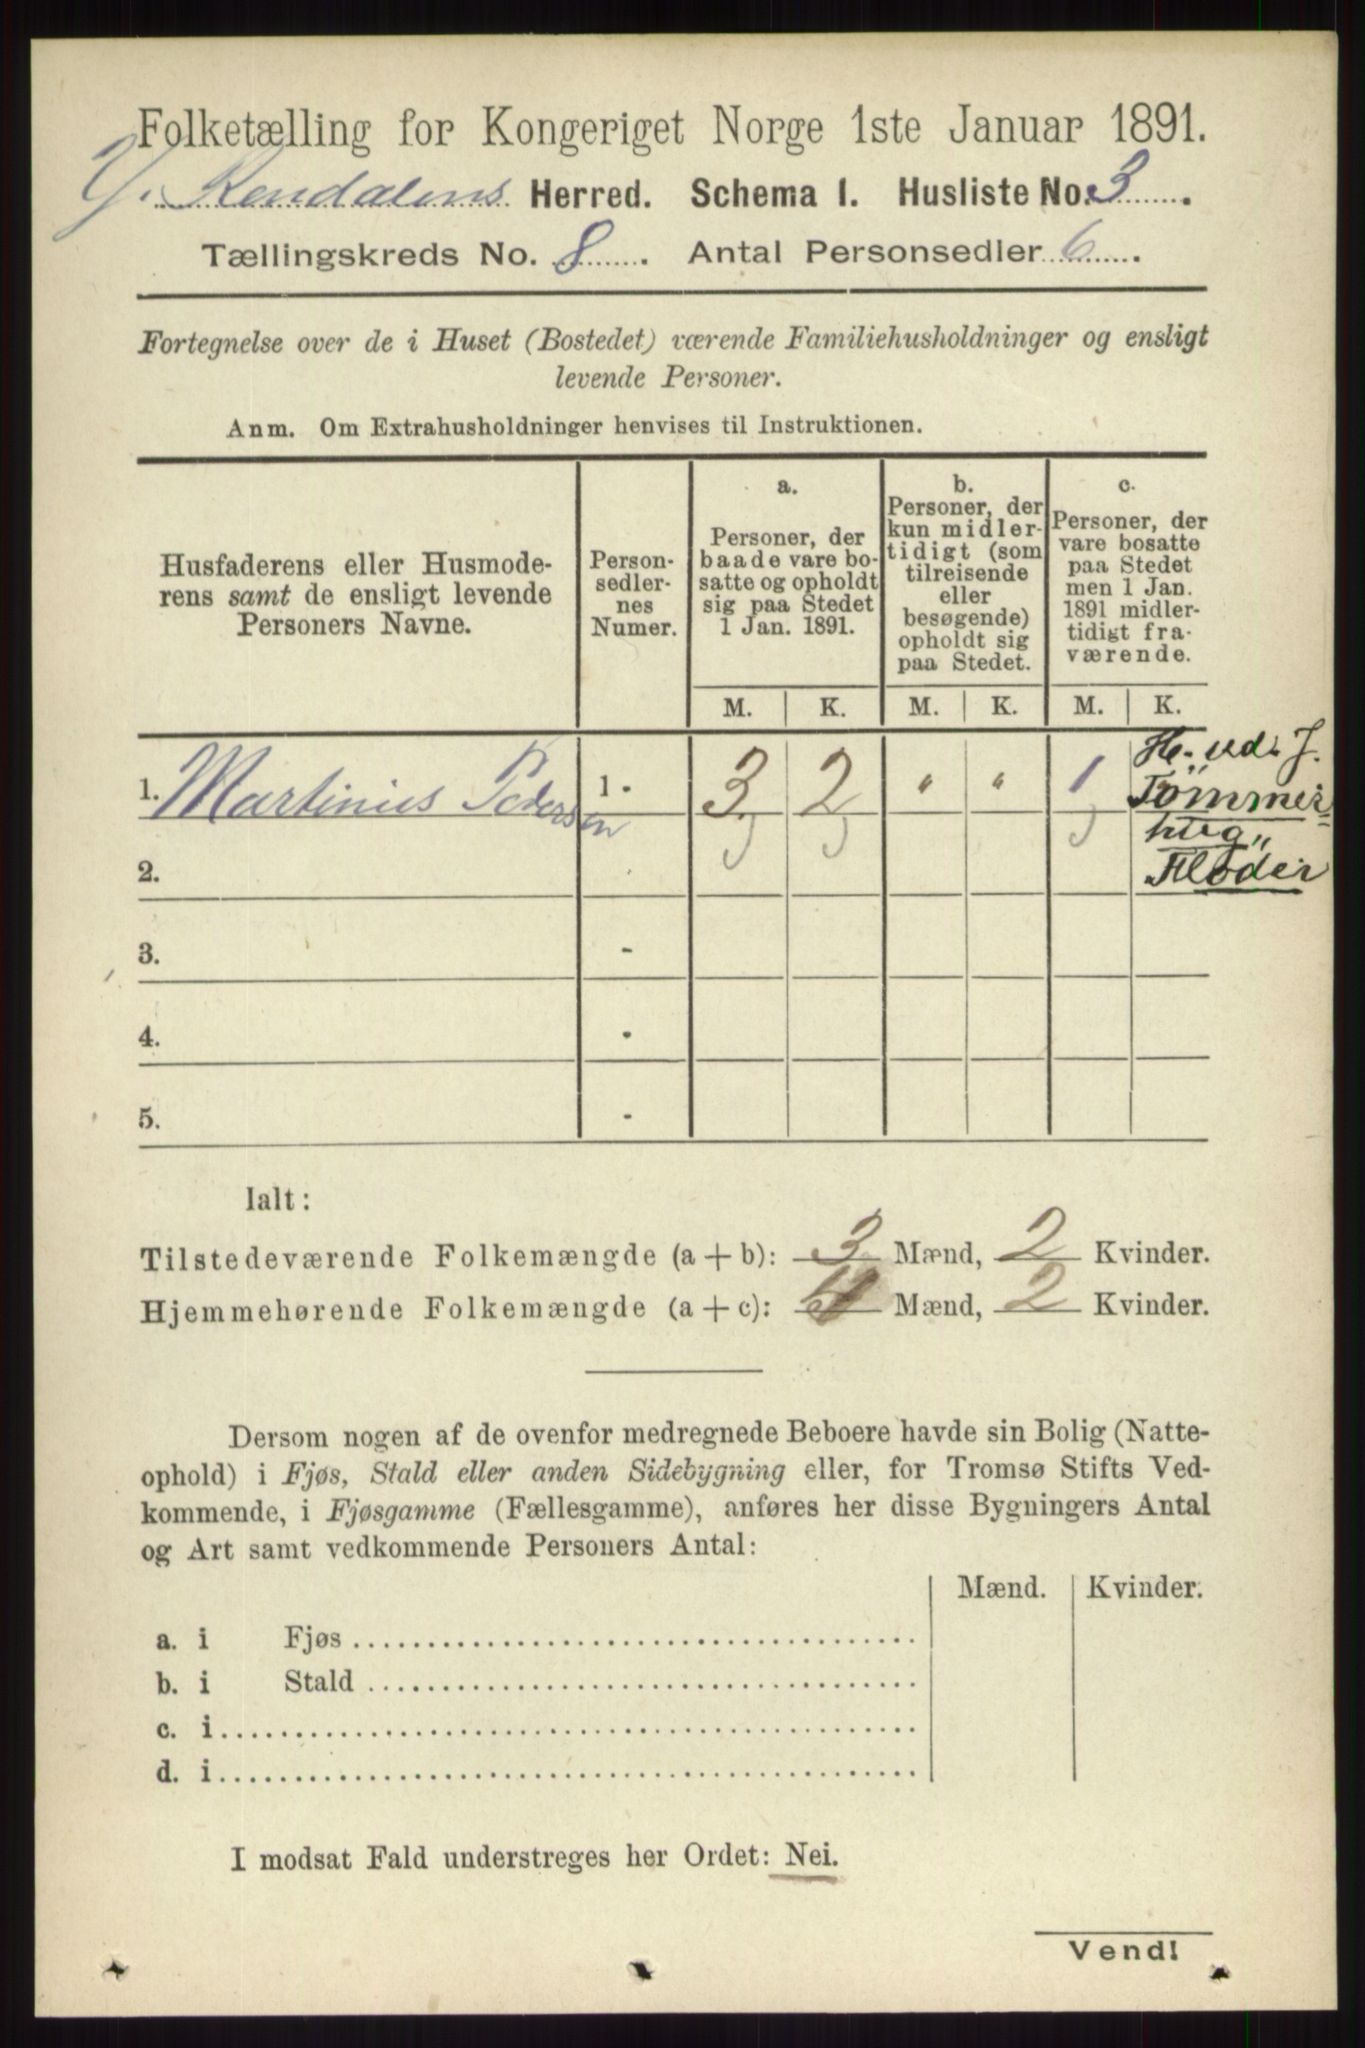 Folketælling for Kongeriget Norge 1ste Januar 1891.
Y. Rendalens Herred. Schema I. Husliste No. 3.
Tællingskreds No. 8. Antal Personsedler 6.
Fortegnelse over de i Huset (Bostedet) værende Familiehusholdninger og ensligt
levende Personer.
Anm. Om Extrahusholdninger henvises til Instruktionen.
Husfaderens eller Husmode-
rens samt de ensligt levende
Personers Navne.
Person-
sedler-
nes
Numer.
a.
Personer, der
baade vare bo-
satte og opholdt
sig paa Stedet
1 Jan. 1891.
b.
Personer, der
kun midler-
tidigt (som
tilreisende
eller
besøgende)
opholdt sig
paa Stedet.
c.
Personer, der
vare bosatte
paa Stedet
men 1 Jan.
1891 midler-
tidigt fra-
værende.
M. K. M. K. M. K.
1. Martinius Pedersen 1 - 3 2 " " 1
Tömmer
hug"
2.
3. -
4. -
5. -
Ialt:
Tilstedeværende Folkemængde (a + b): 3 Mænd, 2 Kvinder.
Hjemmehørende Folkemængde (a + c): 4 Mænd, 2 Kvinder.
Dersom nogen af de ovenfor medregnede Beboere havde sin Bolig (Natte-
ophold) i Fjøs, Stald eller anden Sidebygning eller, for Tromsø Stifts Ved-
kommende, i Fjøsgamme (Fællesgamme), anføres her disse Bygningers Antal
og Art samt vedkommende Personers Antal:
Mænd. Kvinder.
a. i Fjøs
b. i Stald
c. i
d. i
I modsat Fald understreges her Ordet: Nei.
Vend!